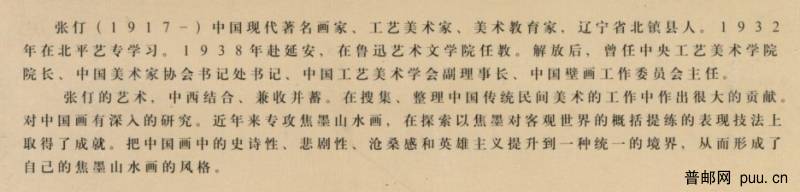 张仃(1917-)中国现代著名画家、工艺美术家、美术教育家，辽宁省北镇县人。1932
年在北平艺专学习。1938年赴延安，在鲁迅艺术文学院任教。解放后，曾任中央工艺美术学院
院长、中国美术家协会书记处书记、中国工艺美术学会副理事长、中国壁画工作委员会主任。
张仃的艺术，中西结合、兼收并蓄。在搜集、整理中国传统民间美术的工作中作出很大的贡献。
对中国画有深入的研究。近年来专攻焦墨山水画，在探索以焦墨对客观世界的概括提练的表现技法上
取得了成就。把中国画中的史诗性、悲剧性、沧桑感和英雄主义提升到一种统一的境界，从而形成了
自己的焦墨山水画的风格。
普邮网 puu.cn